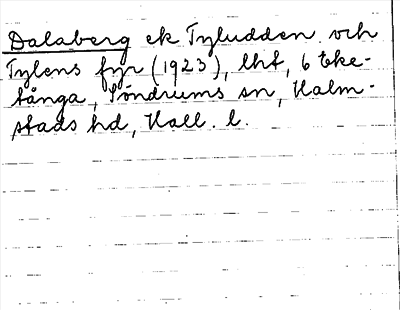 Dalaberg ek Tyludden och
Tylens fyr (1923), lht, b Eke-
tånga, Söndrums sn, Halm-
stads hd, Hall. l.